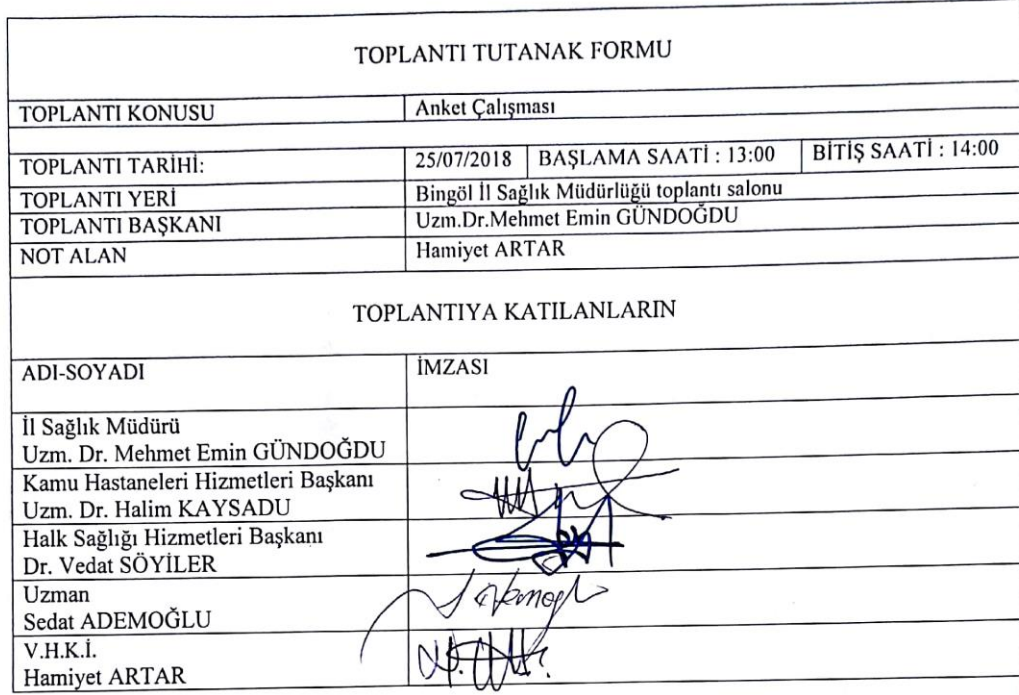 TOPLANTI TUTANAK FORMU
TOPLANTI KONUSU Anket Çalışması
TOPLANTI TARİHİ: 25/07/2018 BAŞLAMA SAATİ : 13:00 BİTİŞ SAATİ : 14:00
TOPLANTI YERİ Bingöl İl Sağlık Müdürlüğü toplantı salonu
TOPLANTI BAŞKANI Uzm.Dr.Mehmet Emin GÜNDOĞDU
NOT ALAN Hamiyet ARTAR
TOPLANTIYA KATILANLARIN
ADI-SOYADI İMZASI
İl Sağlık Müdürü
Uzm. Dr. Mehmet Emin GÜNDOĞDU
Kamu Hastaneleri Hizmetleri Başkanı
Uzm. Dr. Halim KAYSADU
Halk Sağlığı Hizmetleri Başkanı
Dr. Vedat SÖYİLER
Uzman
Sedat ADEMOĞLU
V.H.K.İ.
Hamiyet ARTAR